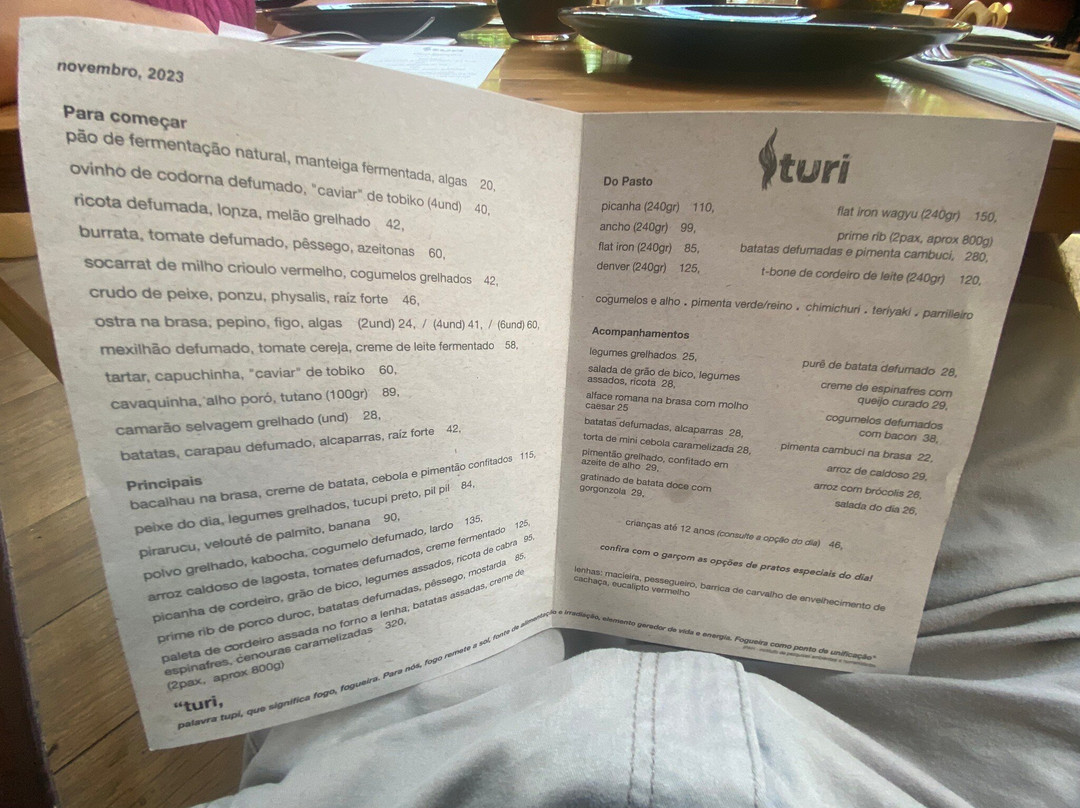 novembro, 2023
Para começar
pão de fermentação natural, manteiga fermentada, algas 20,
ovinho de codorna defumado, "caviar" de tobiko (4und) 40,
ricota defumada, lonza, melão grelhado 42,
burrata, tomate defumado, pêssego, azeitonas 60,
socarrat de milho crioulo vermelho, cogumelos grelhados 42,
crudo de peixe, ponzu, physalis, raíz forte 46,
ostra na brasa, pepino, figo, algas (2und) 24, / (4und) 41, / (6und) 60,
mexilhão defumado, tomate cereja, creme de leite fermentado 58,
tartar, capuchinha, "caviar" de tobiko 60,
cavaquinha, alho poró, tutano (100gr) 89,
camarão selvagem grelhado (und) 28,
batatas, carapau defumado, alcaparras, raíz forte 42,
Principais
bacalhau na brasa, creme de batata, cebola e pimentão confitados 115,
peixe do dia, legumes grelhados, tucupi preto, pil pil 84,
pirarucu, velouté de palmito, banana 90,
polvo grelhado, kabocha, cogumelo defumado, lardo 135,
arroz caldoso de lagosta, tomates defumados, creme fermentado 125,
picanha de cordeiro, grão de bico, legumes assados, ricota de cabra 95,
prime rib de porco duroc, batatas defumadas, pêssego, mostarda 85,
paleta de cordeiro assada no forno a lenha, batatas assadas, creme de
espinafres, cenouras caramelizadas 320,
(2pax, aprox 800g)
"turi,
palavra tupi, que significa fogo, fogueira. Para nós, fogo remete a sol, fonte de alimentação e irradiação, elemento gerador de vida e energia. Fogueira como ponto de unificação"
turi
Do Pasto
picanha (240gr) 110,
ancho (240gr) 99,
flat iron (240gr) 85,
denver (240gr) 125,
flat iron wagyu (240gr) 150,
prime rib (2pax, aprox 800g)
batatas defumadas e pimenta cambuci, 280,
t-bone de cordeiro de leite (240gr) 120,
cogumelos e alho . pimenta verde/reino . chimichuri . teriyaki . parrilleiro
Acompanhamentos
legumes grelhados 25,
salada de grão de bico, legumes
assados, ricota 28,
alface romana na brasa com molho
caesar 25
batatas defumadas, alcaparras 28,
torta de mini cebola caramelizada 28,
pimentão grelhado, confitado em
azeite de alho 29,
gratinado de batata doce com
gorgonzola 29,
purê de batata defumado 28,
creme de espinafres com
queijo curado 29,
cogumelos defumados
com bacon 38,
pimenta cambuci na brasa 22,
arroz de caldoso 29,
arroz com brócolis 26,
salada do dia 26,
crianças até 12 anos (consulte a opção do dia) 46,
confira com o garçom as opções de pratos especiais do dia!
lenhas: macieira, pessegueiro, barrica de carvalho de envelhecimento de
cachaça, eucalipto vermelho
turi